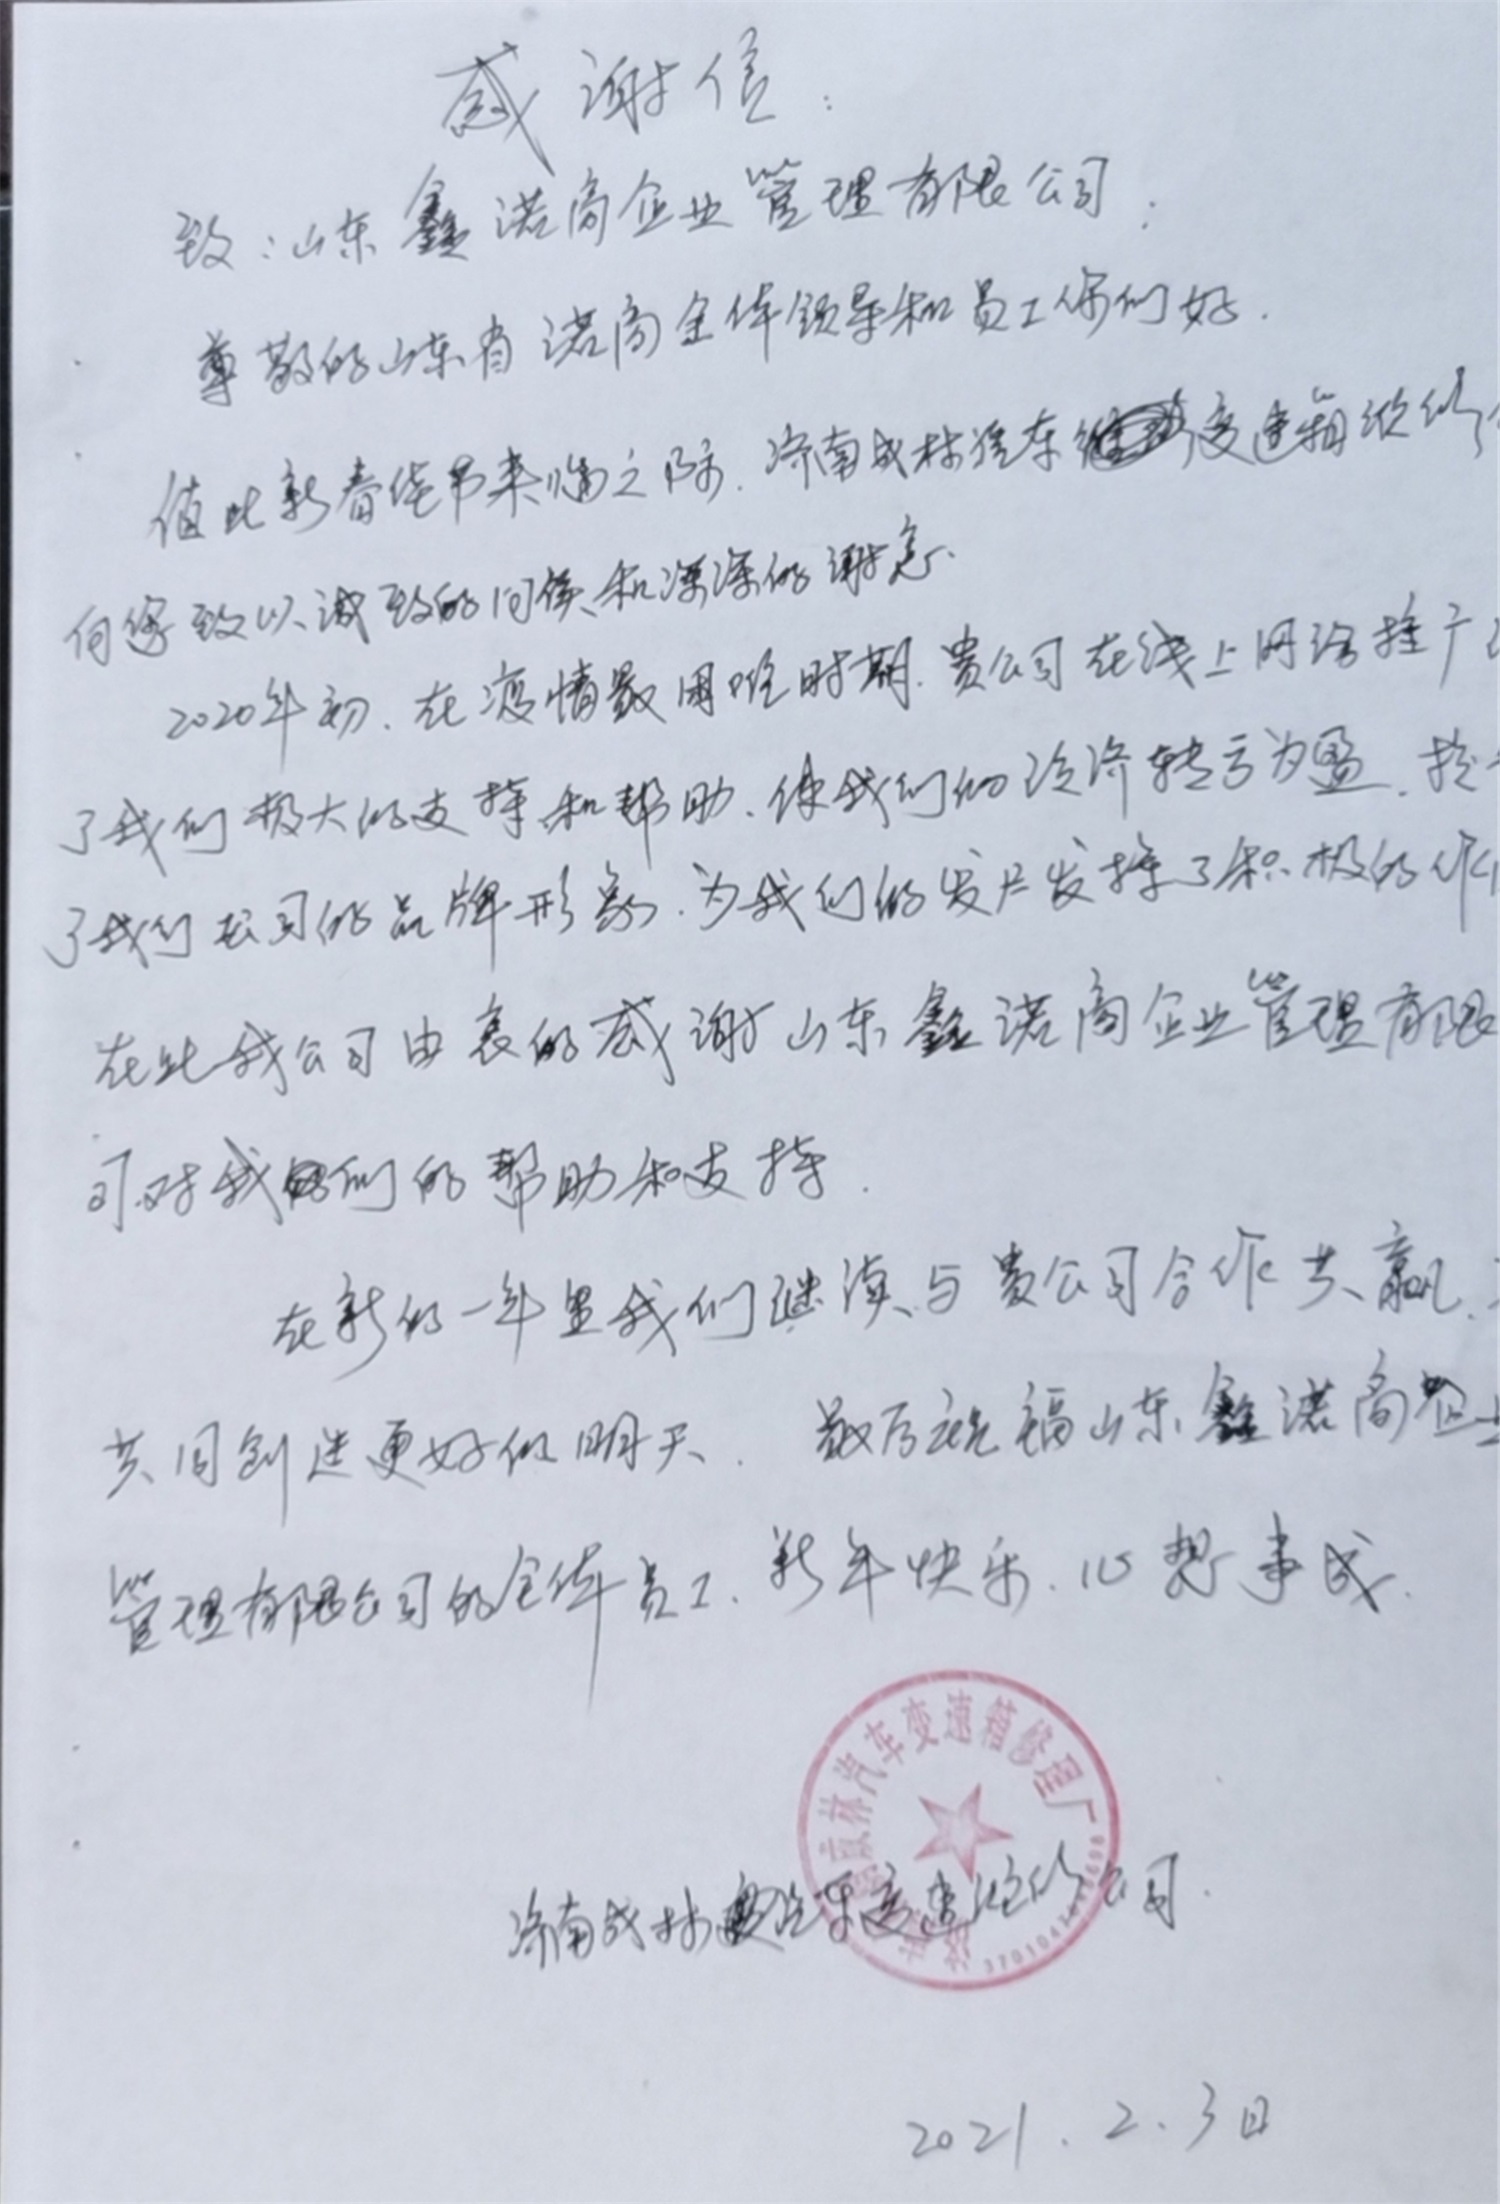 感谢信:
致:山东鑫诺商企业管理有限公司:
尊敬的山东省诺商全体领导和员工你们好.
值此新春佳节来临之际.济南成林汽车变速箱维修
向您致以诚致的问候和深深的谢意.
2020年初.在疫情最困难时期.贵公司在线上网络推广
了我们极大的支持和帮助.使我们的经济转亏为盈.
了我们公司的品牌形象.为我们的发展发挥了积极的作
在此我公司由衷的感谢山东鑫诺商企业管理有限
司对我们的帮助和支持.
在新的一年里我们继续与贵公司合作共赢.
共同创造更好的明天. 最后祝福山东鑫诺商企业
管理有限公司的全体员工.新年快乐.心想事成.
林汽车变速箱修理厂
济南成林汽车变速 修公司.
2021.2.3日